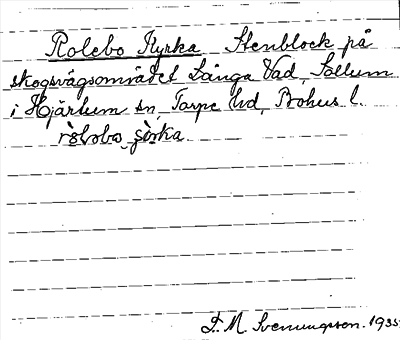 Rolebo Kyrka Stenblock på
skogsvägsområdet Långa Vad, Sollum
i Hjärtum sn, Torpe hd, Bohus l.
F. M. Svenungsson. 1935.